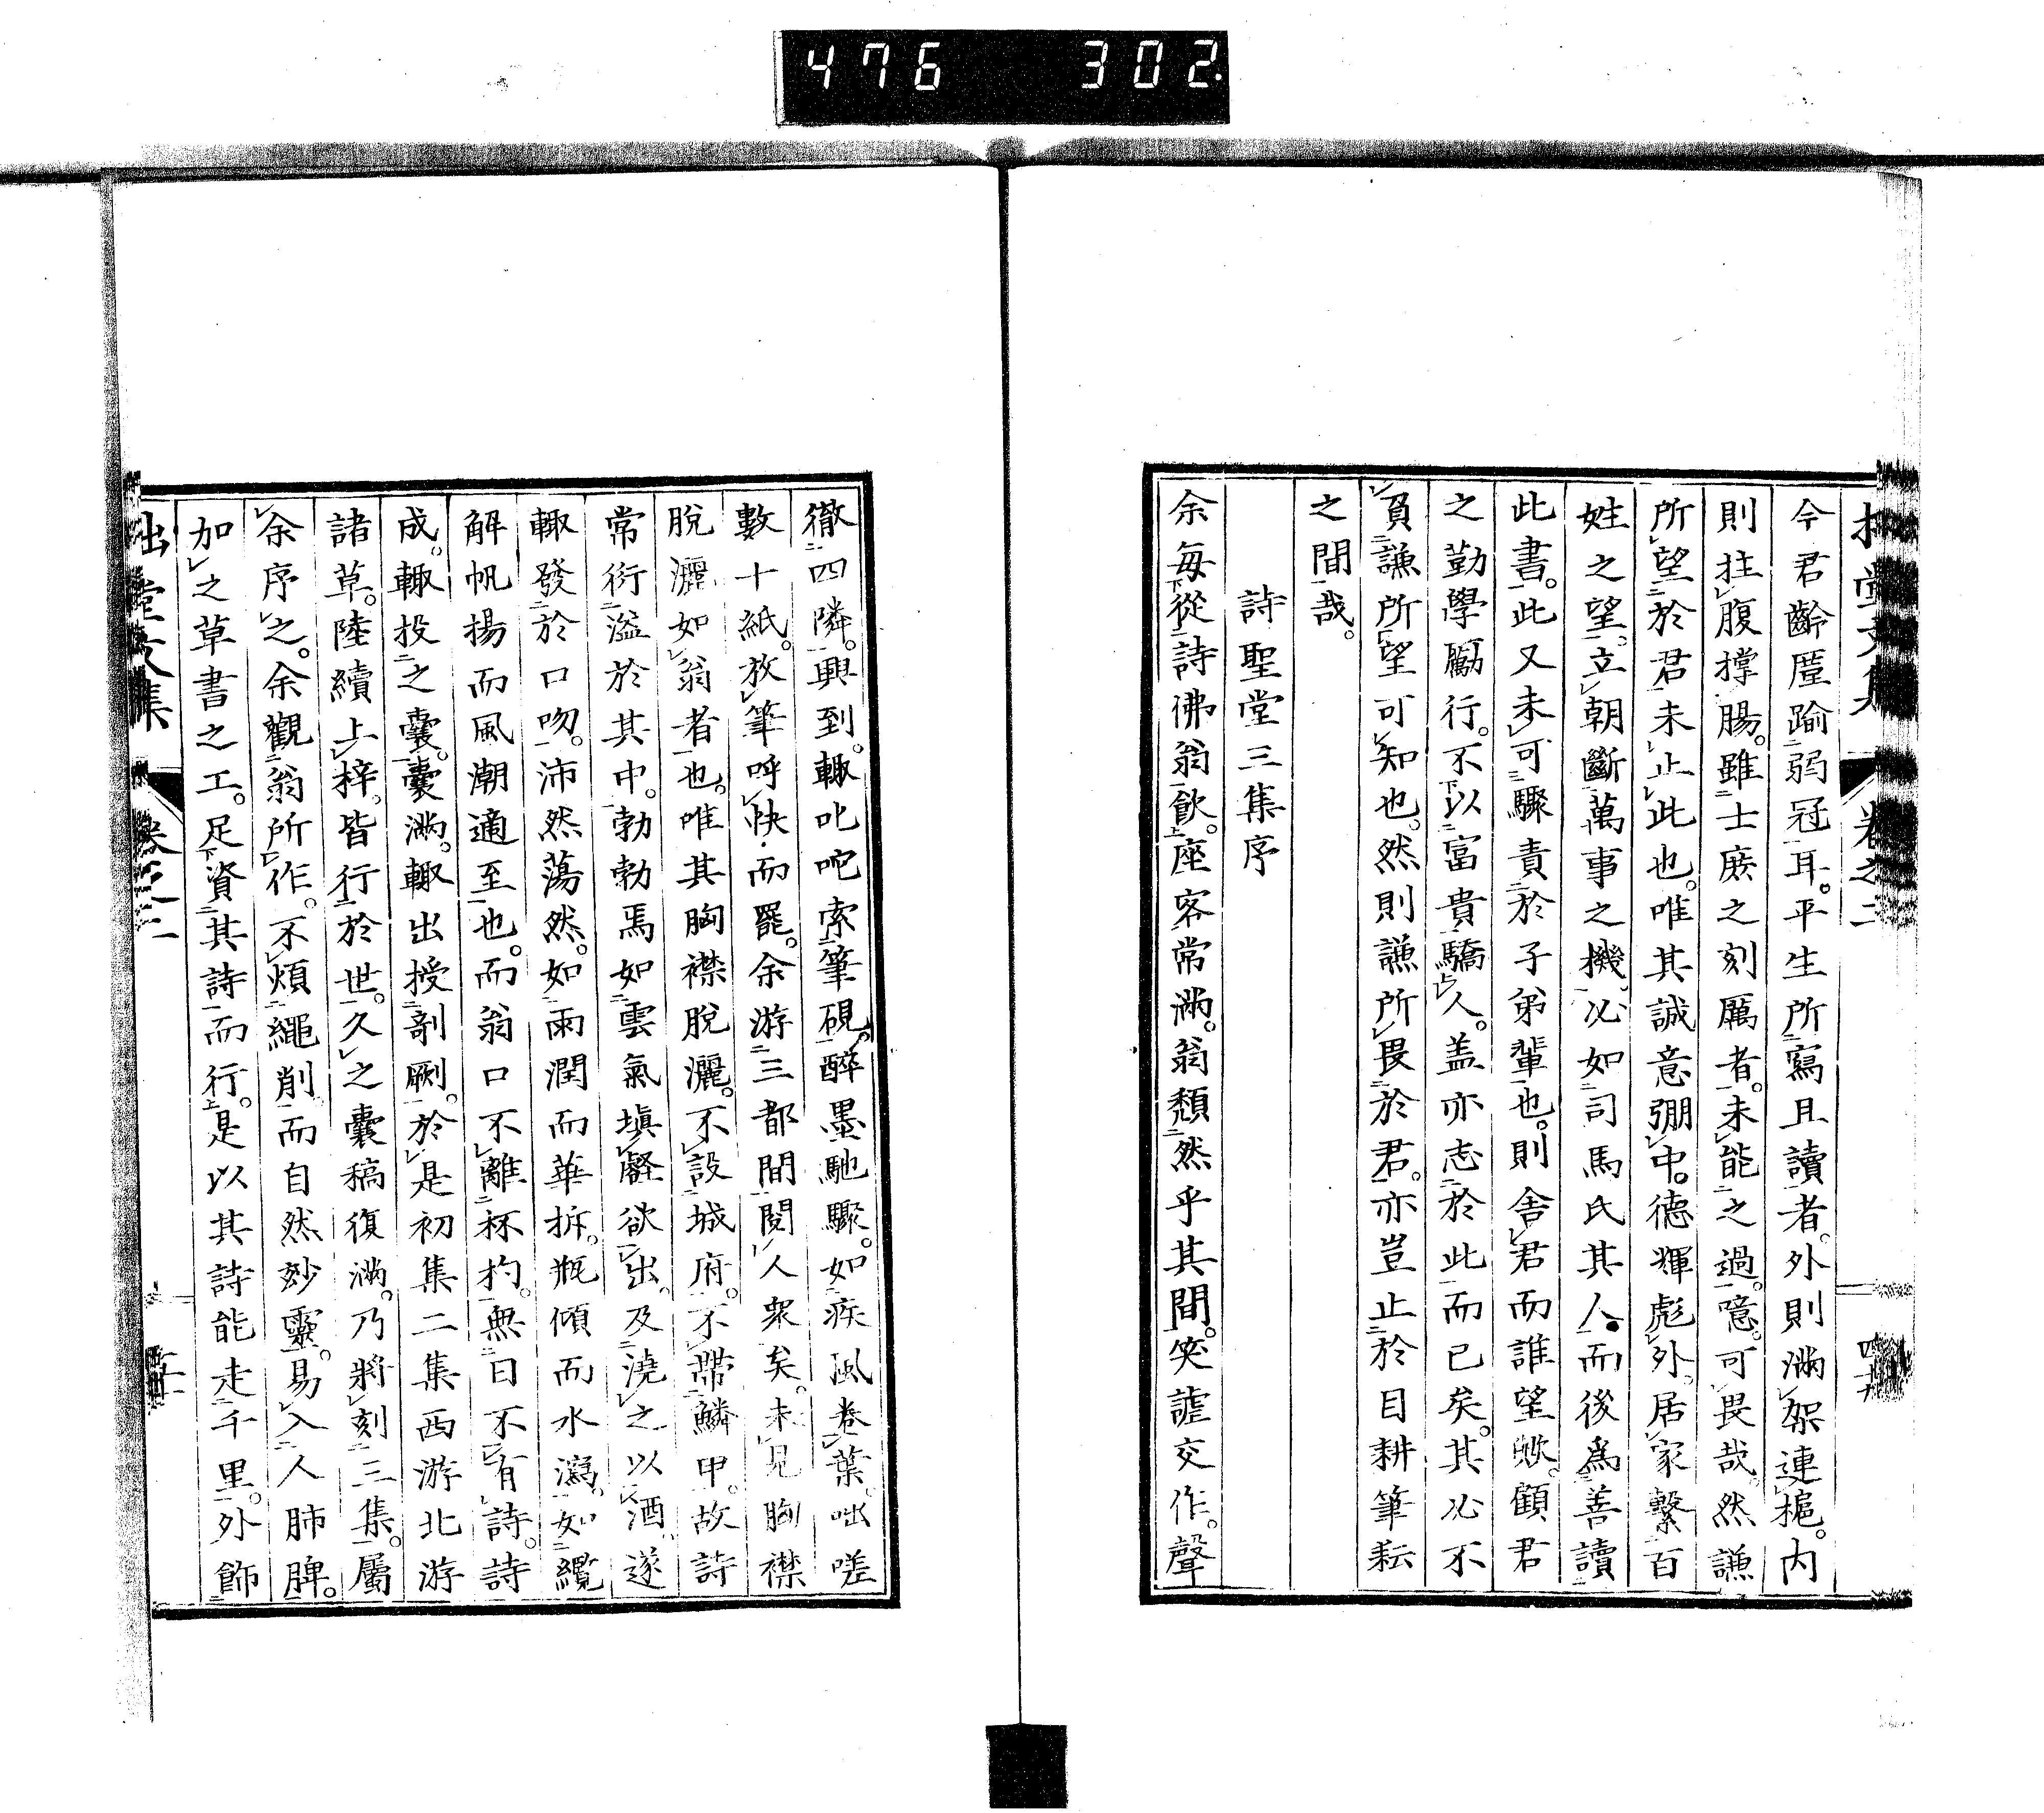 476 302
今君齡厪踰弱冠耳。平生所寫且讀者。外則滿架連楹。内
則拄腹撑腸。雖士庶之刻厲者。未能之過。噫。可畏哉。然謙
所望於君。未止此也。唯其誠意弸中。德輝彪外。居家繫百
姓之望。立朝斷萬事之機。必如司馬氏其人。而後爲善讀
此書。此又未可驟責於子弟輩也。則舍君而誰望歟。顧君
之勤學勵行。不以富貴驕人。盖亦志於此而已矣。其必不
負謙所望可知也。然則謙所畏於君。亦豈止於目耕筆耘
之間哉。
詩聖堂三集序
余每從詩佛翁飲。座客常滿。翁頹然乎其間。笑謔交作。聲
徹四隣。興到。輙叱咜索筆硯。醉墨馳驟。如疾風卷葉。咄嗟
數十紙。放筆呼快而罷。余游三都間。閱人衆矣。未見胸襟
脫灑如翁者也。唯其胸襟脫灑。不設城府。不帶鱗甲。故詩
常衍溢於其中。勃勃焉如雲氣塡壑欲出。及澆之以酒。遂
輙發於口吻。沛然蕩然。如雨潤而華拆。瓶傾而水瀉。如纜
解帆揚而風潮適至也。而翁口不離杯杓。無日不有詩。詩
成。輙投之囊。囊滿。輙出授剞劂。於是初集二集西游北游
諸草。陸續上梓。皆行於世。久之囊稿復滿。乃將刻三集。屬
余序之。余觀翁所作。不煩繩削。而自然玅靈。易入人肺脾。
加之草書之工。足資其詩而行。是以其詩能走千里。外飾
拙堂文集 卷之二